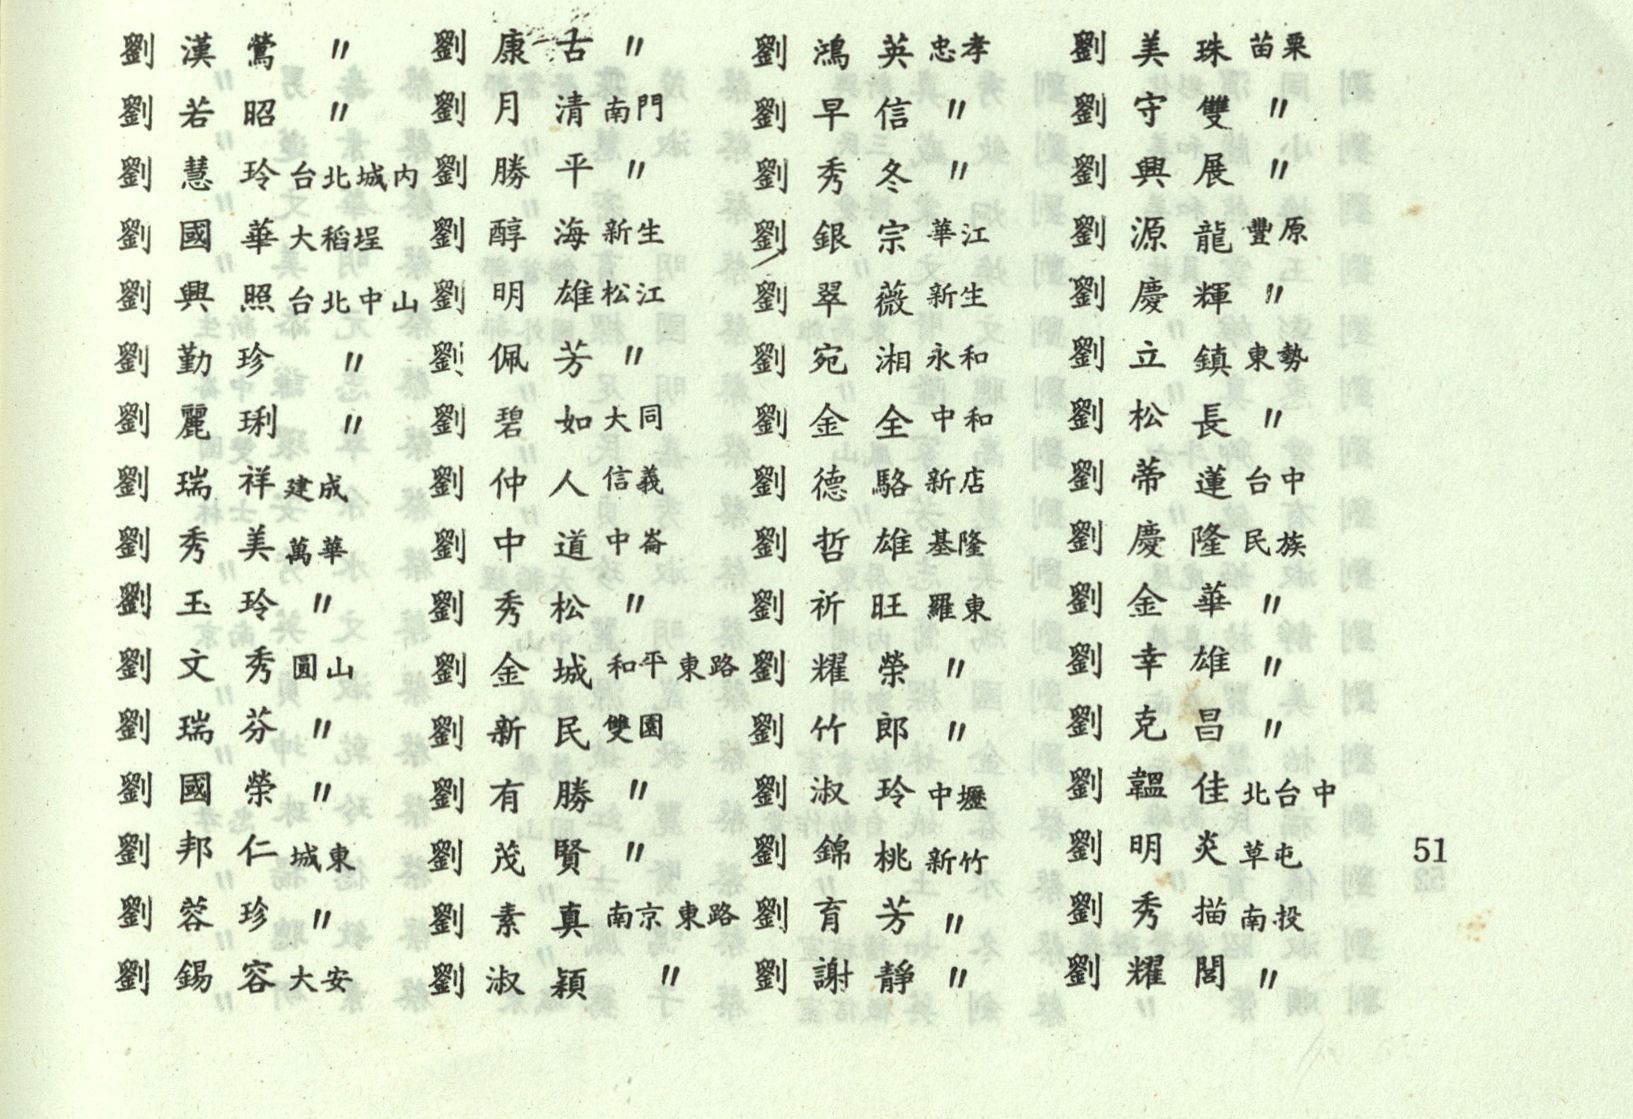 劉漢鶯 〃
劉若昭 〃
劉慧玲 台北城内
劉國華 大稻埕
劉興照 台北中山
劉勤珍 〃
劉麗琍 〃
劉瑞祥 建成
劉秀美 萬華
劉玉玲 〃
劉文秀 圓山
劉瑞芬 〃
劉國榮 〃
劉邦仁 城東
劉蓉珍 〃
劉錫容 大安
劉康古 〃
劉月清 南門
劉勝平 〃
劉醇海 新生
劉明雄 松江
劉佩芳 〃
劉碧如 大同
劉仲人 信義
劉中道 中崙
劉秀松 〃
劉金城 和平東路
劉新民 雙園
劉有勝 〃
劉茂賢 〃
劉素真 南京東路
劉淑穎 〃
劉鴻英 忠孝
劉早信 〃
劉秀冬 〃
劉銀宗 華江
劉翠薇 新生
劉宛湘 永和
劉金全 中和
劉德駱 新店
劉哲雄 基隆
劉祈旺 羅東
劉耀榮 〃
劉竹郎 〃
劉淑玲 中壢
劉錦桃 新竹
劉育芳 〃
劉謝靜 〃
劉美珠 苗栗
劉守雙 〃
劉興展 〃
劉源龍 豐原
劉慶輝 〃
劉立鎮 東勢
劉松長 〃
劉蒂蓮 台中
劉慶隆 民族
劉金華 〃
劉幸雄 〃
劉克昌 〃
劉韞佳 北台中
劉明炎 草屯
劉秀描 南投
劉耀閭 〃
51